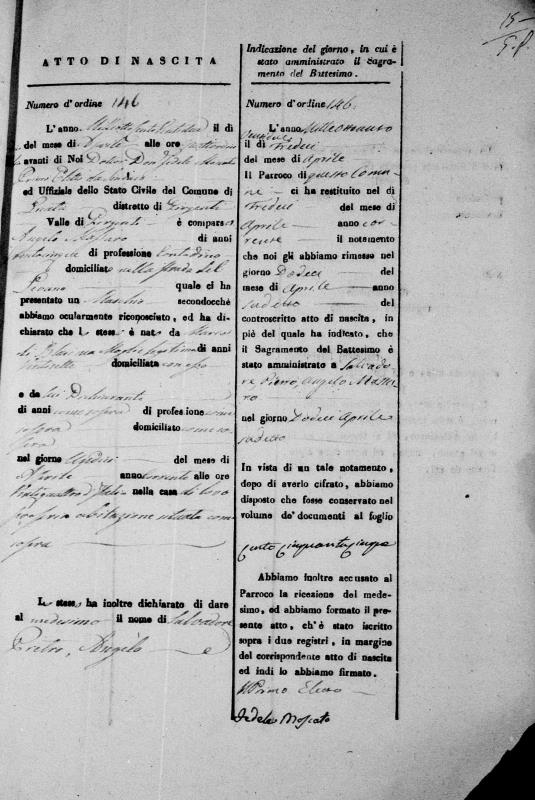 15
ATTO DI NASCITA
Numero d'ordine 146
L'anno il dì
del mese di Aprile alle ore
avanti di Noi Don Fidele Moscato
Primo Eletto
ed Uffiziale dello Stato Civile del Comune di
distretto di Girgenti
Valle di Girgenti è comparso
Angelo di anni
di professione Contadino
domiciliato nella strada del
quale ci ha
presentato un Maschio secondocchè
abbiamo ocularmente riconosciuto, ed ha di-
chiarato che lo stesso è nato da
di Blasi sua Moglie legittima di anni
domiciliata con esso
e da lui Dichiarante
di anni come sopra di professione come
sopra domiciliato come so
pra
nel giorno Undici del mese di
Aprile anno corrente alle ore
Ventiquattro d'Italia nella casa di loro
propria abitazione situata come
sopra
Lo stesso ha inoltre dichiarato di dare
al medesimo il nome di Salvadore
Pietro, Angelo
Indicazione del giorno, in cui è
stato amministrato il Sagra-
mento del Battesimo.
Numero d'ordine 146
L'anno Milleottocento
il dì Tredici
del mese di Aprile
Il Parroco di questo Comu
ne ci ha restituito nel dì
Tredici del mese di
Aprile anno cor
rente il notamento
che noi gli abbiamo rimesso nel
giorno Dodici del
mese di Aprile anno
sudetto del
controscritto atto di nascita, in
piè del quale ha indicato, che
il Sagramento del Battesimo è
stato amministrato a Salvado
re Pietro Angelo
nel giorno Dodici Aprile
sudetto
In vista di un tale notamento,
dopo di averlo cifrato, abbiamo
disposto che fosse conservato nel
volume de' documenti al foglio
Cento Cinquanta Cinque
Abbiamo inoltre accusato al
Parroco la ricezione del mede-
simo, ed abbiamo formato il pre-
sente atto, ch'è stato iscritto
sopra i due registri, in margine
del corrispondente atto di nascita
ed indi lo abbiamo firmato.
Il Primo Eletto
Fidele Moscato